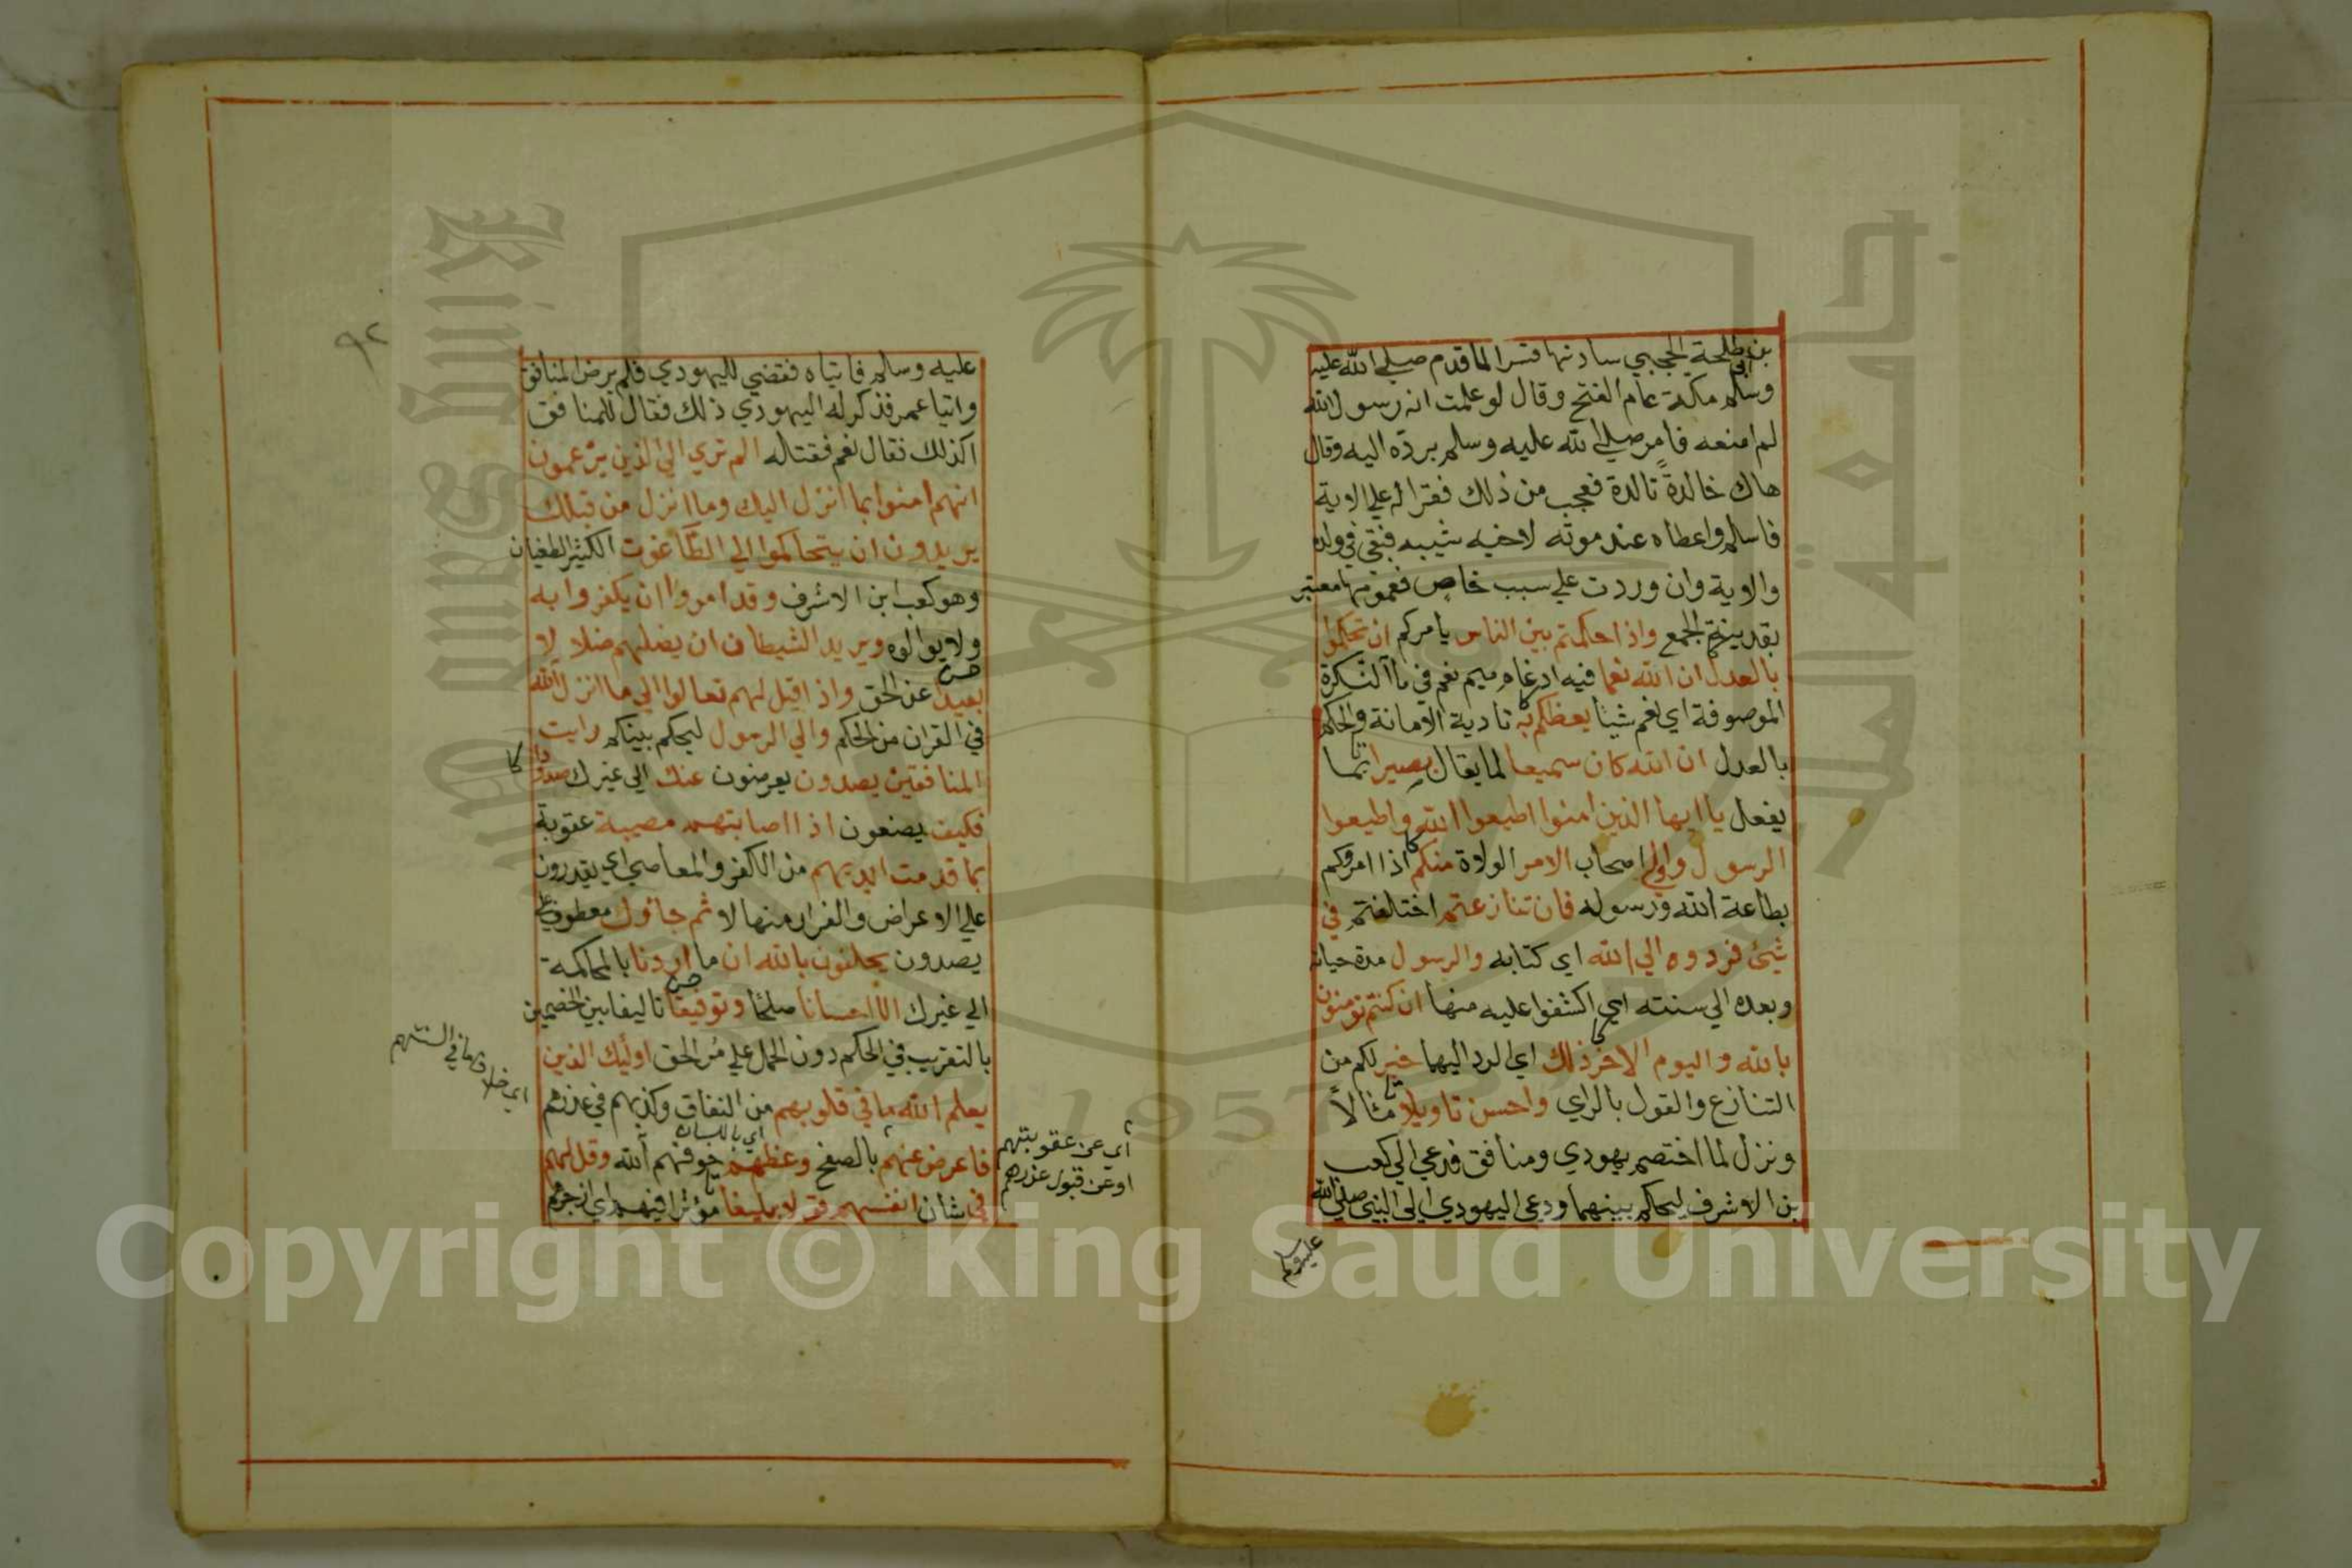 بن ابي طلحة الحجبي سادنها قسرا لما قدم صلي الله عليه
وسلم مكة عام الفتح وقال لو علمت انه رسول الله
لم امنعه فامر صلي الله عليه وسلم برده اليه وقال
هاك خالدة تالدة فعجب من ذلك فقرا له علي الاية
فاسلم واعطاه عند موته لاخيه شيبه فبقي في ولده
والاية وان وردت علي سبب خاص فعمومها معتبر
بقرينة الجمع واذا حكمتم بين الناس يامركم ان تحكموا
بالعدل ان الله نعما فيه ادغام ميم نعم في ما النكرة
الموصوفة اي نعم شيا يعظكم به تادية الامانة والحكم
بالعدل ان الله كان سميعا لما يقال بصيرا بما
يفعل يا ايها الذين امنوا اطيعوا الله واطيعوا
الرسول واولي اصحاب الامر الولاة منكم اذا امروكم
بطاعة الله ورسوله فان تنازعتم اختلفتم في
شيئ فردوه الي الله اي كتابه والرسول مدة حياته
وبعده الي سنته اي اكشفوا عليه منها ان كنتم تومنون
بالله واليوم الاخر ذلك اي الرد اليهما خير لكم من
التنازع والقول بالراي واحسن تاويلا مثالاً
ونزل لما اختصم يهودي ومنافق فدعي الي كعب
بن الاشرف ليحكم بينهما ودعي اليهودي الي النبي صلي الله
عليه وسلم
٩٢
عليه وسلم فاتياه فقضي لليهودي فلم يرض المنافق
واتيا عمر فذكر له اليهودي ذلك فقال للمنافق
اكذلك فقال نعم فقتله الم تري الي الذين يزعمون
انهم امنوا بما انزل اليك وما انزل من قبلك
يريدون ان يتحاكموا الي الطاغوت الكثير الطغيان
وهو كعب ابن الاشرف وقد امروا ان يكفروا به
ولا يوالوه ويريد الشيطان ان يضلهم ضلالا
بعيدا عن الحق واذا قيل لهم تعالوا الي ما انزل الله
في القران من الحكم والي الرسول ليحكم بينكم رايت
المنافقين يصدون يعرضون عنك الي غيرك صدودا
فكيف يصنعون اذا اصابتهم مصيبة عقوبة
بما قدمت ايديهم من الكفر والمعاصي اي يقدرون
علي الاعراض والفرار منها لا ثم جاؤك معطوف علي
يصدون يحلفون بالله ان ما اردنا بالمحاكمة
الي غيرك الا احسانا صلحا وتوفيقا تاليفا بين الخصمين
بالتقريب في الحكم دون الحمل علي مر الحق اوليك الذين
يعلم الله ما في قلوبهم من النفاق وكذبهم في عذرهم
فاعرض عنهم بالصفح وعظهم خوفهم الله وقل لهم
في شان انفسهم قولا بليغا مؤثرا فيهم اي ازجرهم
اي باللسان
اي عن عقوبتهم
او عن قبول عذرهم
اي خلاف ما في السنتهم